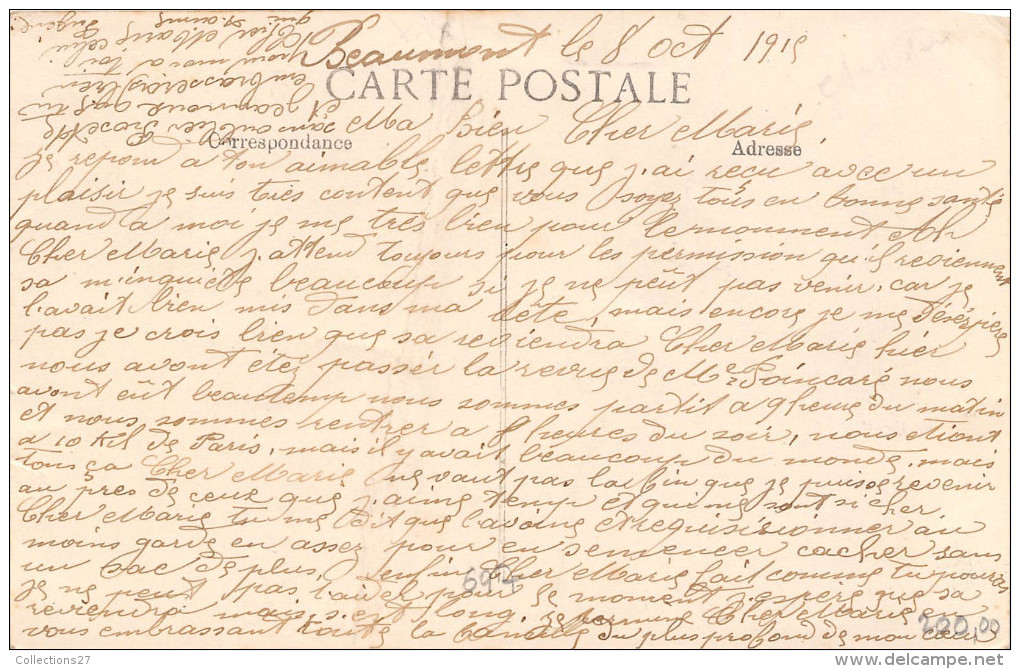 Beaumont le 8 Oct 1915
CARTE POSTALE
Ma Bien Cher Marie,
Correspondance
Adresse
je repond a ton aimable lettre que j'ai reçu avec un
plaisir je suis très content que vous soyez tous en bonne santé
quand a moi je me très bien pour le moment
Cher Marie j'attend toujours pour les permission qu'il reviennent
sa m'inquiète beaucoup si je ne peût pas venir, car je
l'avait bien mis dans ma tête, mais encore je me
pas je crois bien que sa reviendra Cher Marie hier
nous avont étez passér la revue de Mr Poincaré nous
avont eût beautemp nous sommes partit a 9 heure du matin
et nous sommes rentrer a 8 heures du soir, nous etiont
a 10 Kil de Paris, mais il y avait beaucoup du monde, mais
tous ça Cher Marie ne vaut pas la fin que je puisse revenir
au pres de ceux que j'aime temp et qui me sont si cher
Cher Marie tu me dit que l'avoine et requisisionner au
moins garde en assez pour en semencer cacher sans
un sac de plus, enfin Cher Marie fait comme tu pourra
je ne peut pas l'aider pour le moment j'espere que sa
reviendra mais s'est long je termine Cher Marie en
vous embrassant toute la famille du plus profond de mon cœur
et sans oublier
Jeannoux
embrasserez bien
pour moi
Cher Marie celui
qui
694
200,00
Collections27